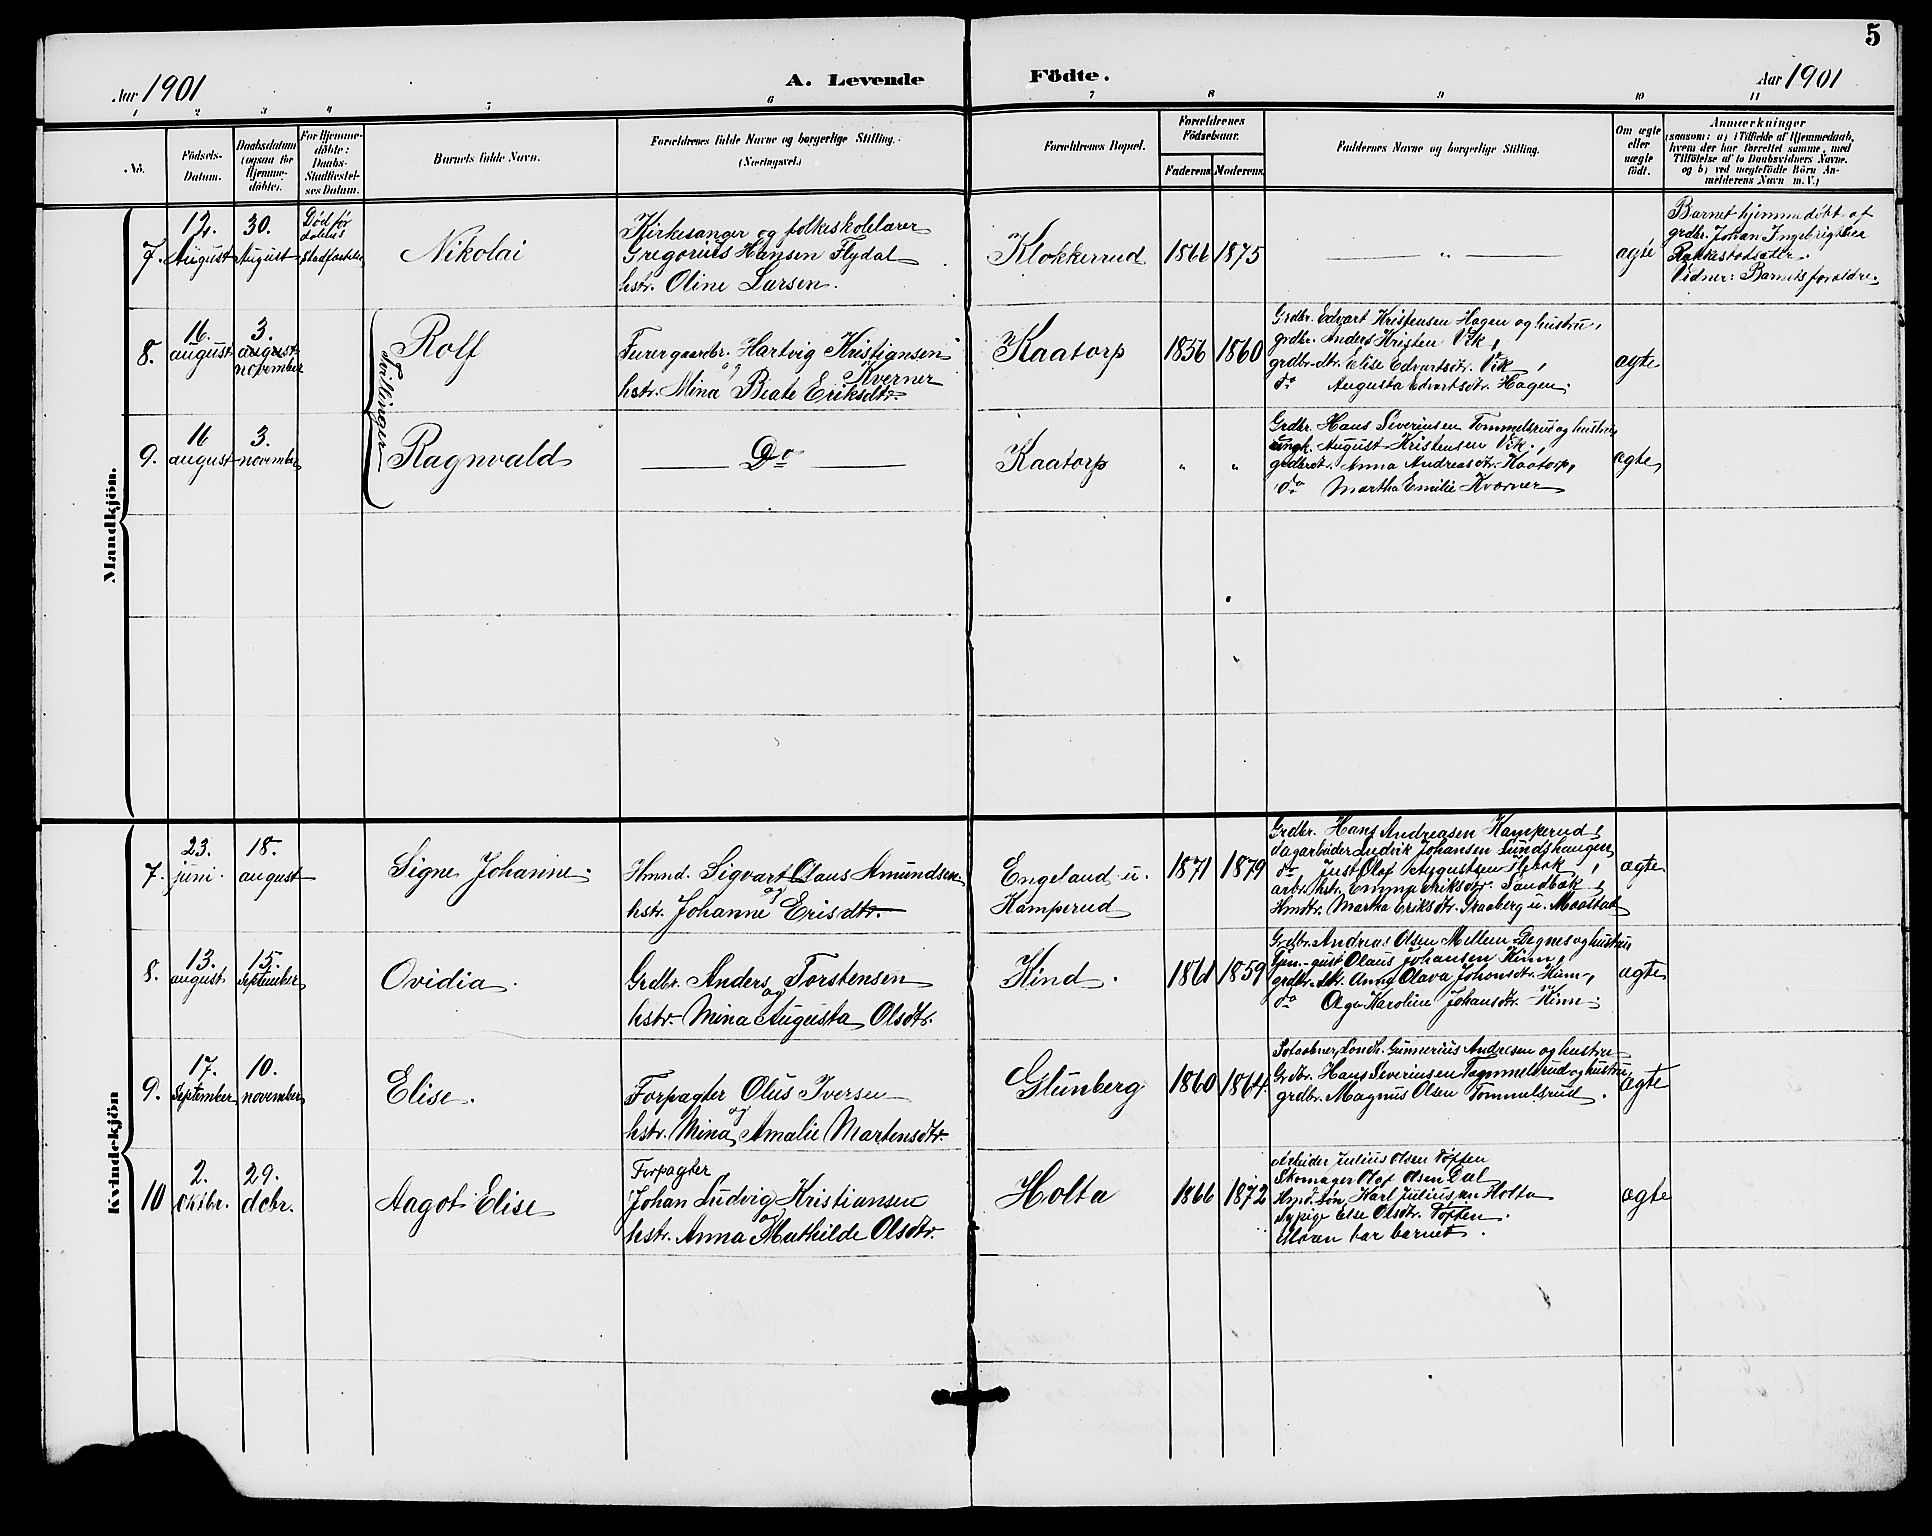 5
Aar 1901
A. Levende
Födte.
Aar 1901
1 2 3 4 5 6 7 8 9 10 11
No.
Födsels-
Datum.
Daabsdatum
(ogsaa for
Hjemme-
döbte).
For Hjemme-
döbte:
Daabs-
Stadfæstel-
ses Datum.
Barnets fulde Navn.
Forældrenes fulde Navne og borgerlige Stilling.
(Næringsvei.)
Forældrenes Bopæl.
Forældrenes
Födselsaar.
Faderens. Moderens.
Faddernes Navne og borgerlige Stilling.
Om ægte
eller
uægte
født.
Anmærkninger
(saasom: a) i Tilfælde af Hjemmedaab,
hvem der har forrettet samme, med
Tilföielse af to Daabsvidners Navne.
og b) ved uægtefödte Börn An-
melderens Navn m. V.)
Mandkjön.
7.
12.
August
30.
August
Død før
daabens
stadfæstelse
Nikolai
Kirkesanger og folkeskolelærer
Gregorius Hansen Flydal
hstr. Oline Larsen.
Klokkerud
1866 1875
— „ —
ægte
Barnet hjemmedøbt af
grdbr. Johan Ingebrigtsen
Vidner: Barnets forældre.
8.
16.
august
3.
august
november
Tvillinger
Rolf
Hartvig Kristiansen
og Kverner
hstr. Mina Beate Eriksdtr.
Kaatorp
1856 1860
Grdbr. Edvart Kristensen Hagen og hustru,
grdbr. Anders Kristen Vik,
grdbr-dtr. Elise Edvartsdtr. Vik,
do Augusta Edvartsdtr. Hagen.
ægte
9.
16
august
3.
november
Ragnvald
Do
Kaatorp
„ „
Grdbr. Hans Severinsen Tommelsrud og hustru,
ungk. August Kristensen Vik,
grdbrdtr. Anna Andreasdtr. Kaatorp,
do Martha Emilie Kverner
ægte
Kvindekjön
7.
23.
juni.
18.
august
Signe Johanne.
Hmnd. Sigvart Olaus Amundsen
og
hstr. Johanne Erisdtr.
Engeland u.
Kamperud
1871 1879
Grdbr. Hans Andreasen Kamperud,
dagarbeider Ludvik Johansen Lundshaugen,
do Just Olaf Augustsen
arbr. hstr. Emma Eriksdtr. Sandbæk,
Hmdtr. Martha Eriksdtr. Skaaberg u. Maastad
ægte
8.
13.
august.
15.
September
Ovidia.
Grdbr. Anders Torstensen
og
hstr. Mina Augusta Olsdtr.
Kind.
1861 1859
Grdbr. Andreas Olsen Mellem Degnes og hustru
Olaus Johansen Kinn,
grdbr. dtr. Anna Olava Johansdtr. Kinn,
do Olga Karoline Johansdtr. Kinn.
ægte
9.
17.
September
10.
november
Elise.
Forpagter Olus Iversen
og
hstr. Mina Amalie Martensdtr.
Glunberg
1860 1864
Gunnerius Andresen og hustru
Grdbr. Hans Severinsen Tommelsrud og hustru,
grdbr. Magnus Olsen Tommelsrud.
ægte
10
2.
Oktbr.
29.
debr.
Aagot Elise
Forpagter
Johan Ludvig Kristiansen
og
hstr. Anna Mathilde Olsdtr.
Holta
1866 1872
Arbeider Julius Olsen Toften
Skomager Olaf Olsen Dal
Hmd. søn Karl Juliussen Holta
Sypige Else Olsdtr. Toften.
Moren bar barnet.
ægte